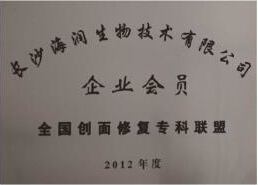 长沙海润生物技术有限公司
企业会员
全国创面修复专科联盟
2012年度